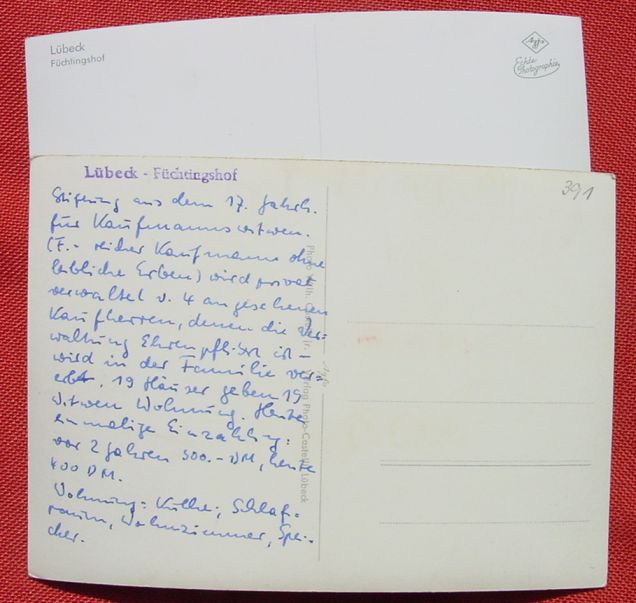 Lübeck
Füchtingshof
Agfa
Echte
Photographie
Lübeck - Füchtingshof
391
Stiftung aus dem 17. Jahrh.
für Kaufmannswitwen.
(F. - reicher Kaufmann ohne
leibliche Erben) wird privat
verwaltet v. 4 angesehenen
Kaufherren, denen die Ver=
waltung Ehrenpflicht ist -
wird in der Familie ver=
erbt. 19 Häuser geben 19
Witwen Wohnung. Heute
einmalige Einzahlung:
vor 2 Jahren 300.- DM, heute
400 DM.
Wohnung: Küche, Schlaf=
raum, Wohnzimmer, Spei=
cher.
Verlag Photo-Castelli, Lübeck